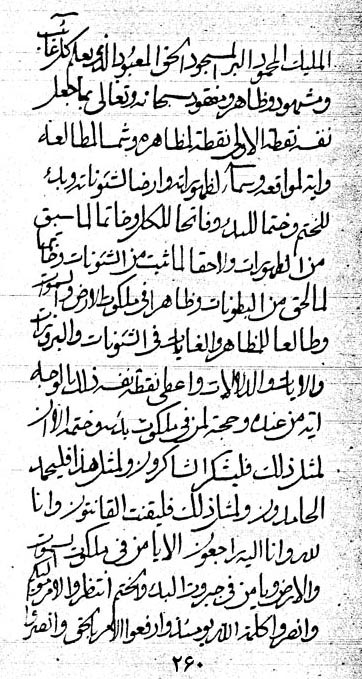 المليك المحمود البر المسجود الحق المعبود الذي يعبد كل غائب
ومشهود وظاهر ومفقود سبحانه وتعالى بما جعل
نفسه نقطة الاولى نقطة لمظاهره وشمسا لمطالعه
واية لمواقعه وسماء لظهوراته وارضا لشئوناته وبدء
للختم وختما للبدء وفاتحا للكل وخاتما لما سبق
من الظهورات ولاحقا لما ثبت من الشئونات وظاهرا
لما لحق من البطونات وظاهرا في ملكوت الارض والسموات
وطالعا للمظاهر والغايات في الشئونات والبروزات
والايات والدلالات واعطى نقطة نفسه ذلك الوجه
اية من عنده وحجة لمن في ملكوت بدئه وختمه الا ان
لمثل ذلك فليشكر الشاكرون ولمثل هذا فليحمد
الحامدون ولمثل ذلك فليقنت القانتون وانا
لله وانا اليه راجعون الا يا من في ملكوت السموات
والارض ويا من في جبروت البدء والختم انتظروا لامر موليكم
وانصروا كلمة الله يومئذ وارفعوا الامر بالحق وانصرونا
٢٦٠